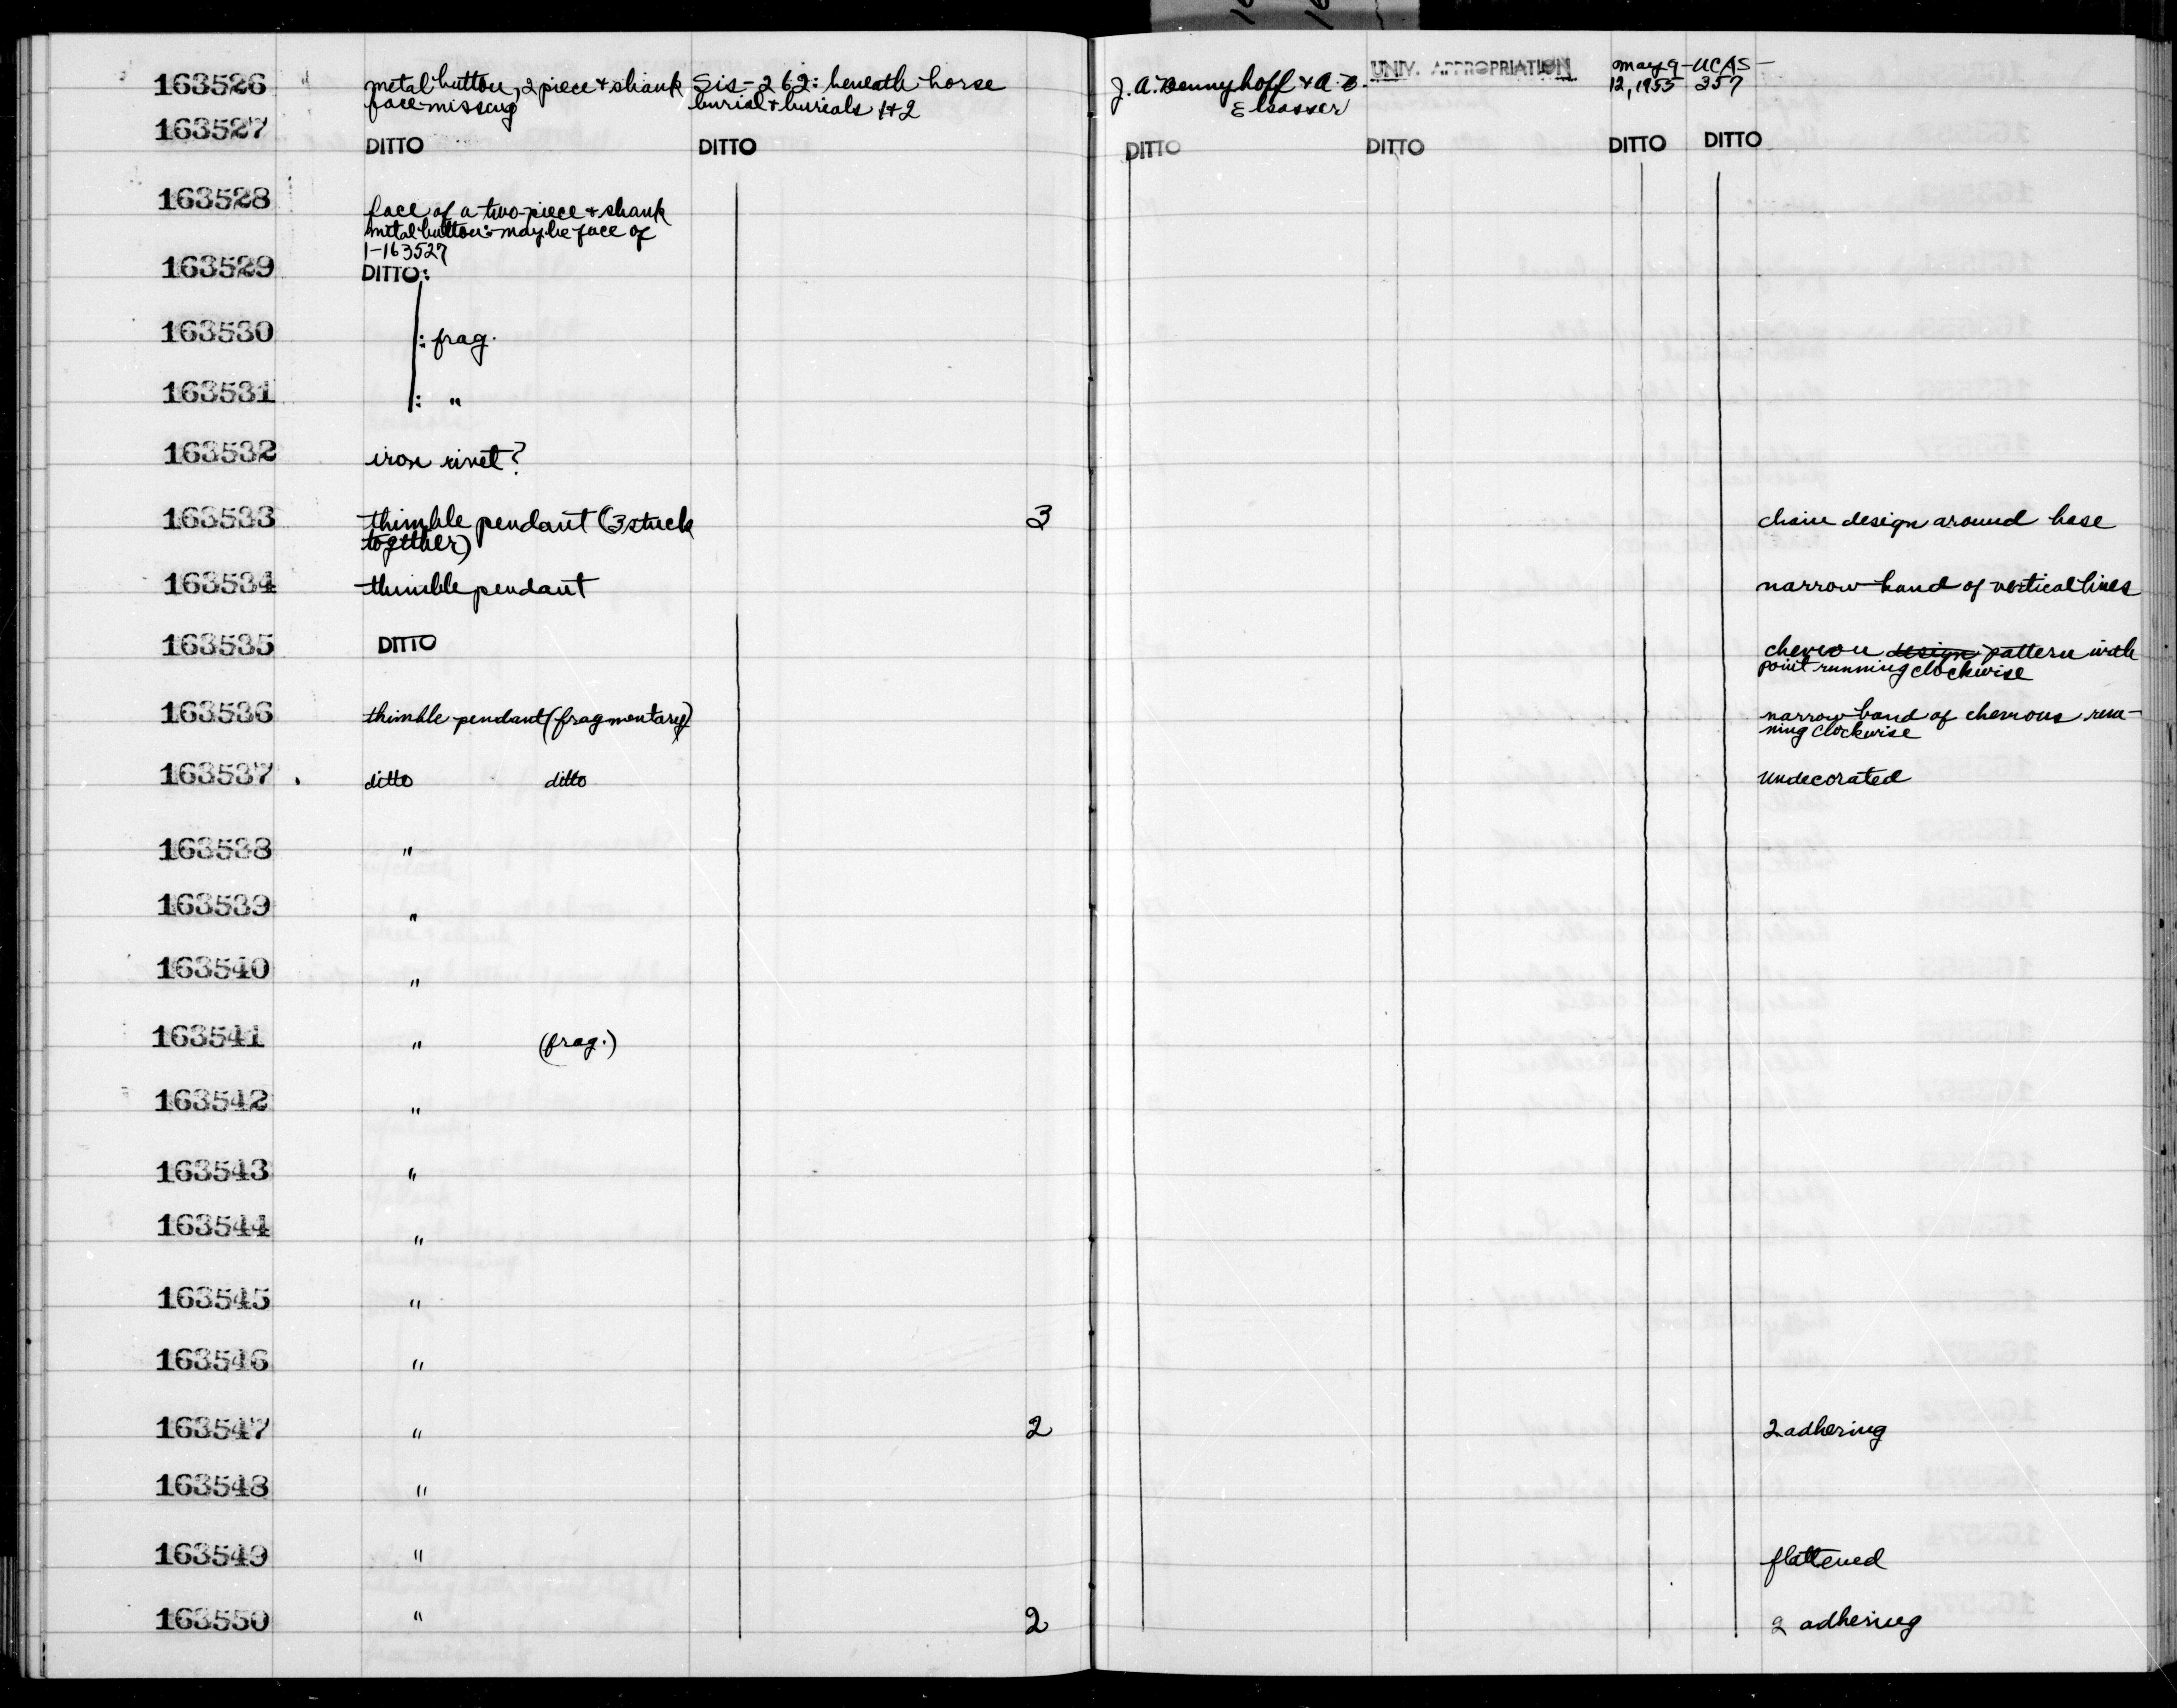 163526 metal button, 2 piece + shank Sis-262: beneath horse J. A. Bennyhoff & A. B. UNIV. APPROPRIATION May 9- UCAS-
face missing burial + burials 1+2 Elsasser 12, 1955 257
163527 DITTO DITTO DITTO DITTO DITTO DITTO
163528 face of a two-piece + shank
metal button: maybe face of
1-163527
163529 DITTO:
163530 : frag.
163531 : "
163532 iron rivet?
163533 thimble pendant (3 stuck 3 chain design around base
together)
163534 thimble pendant narrow band of vertical lines
163535 DITTO chevron design pattern with
point running clockwise
163536 thimble pendant (fragmentary) narrow band of chevrons run-
ning clockwise
163537 ditto ditto undecorated
163538 "
163539 "
163540 "
163541 " (frag.)
163542 "
163543 "
163544 "
163545 "
163546 "
163547 " 2 2 adhering
163548 "
163549 " flattened
163550 " 2 2 adhering